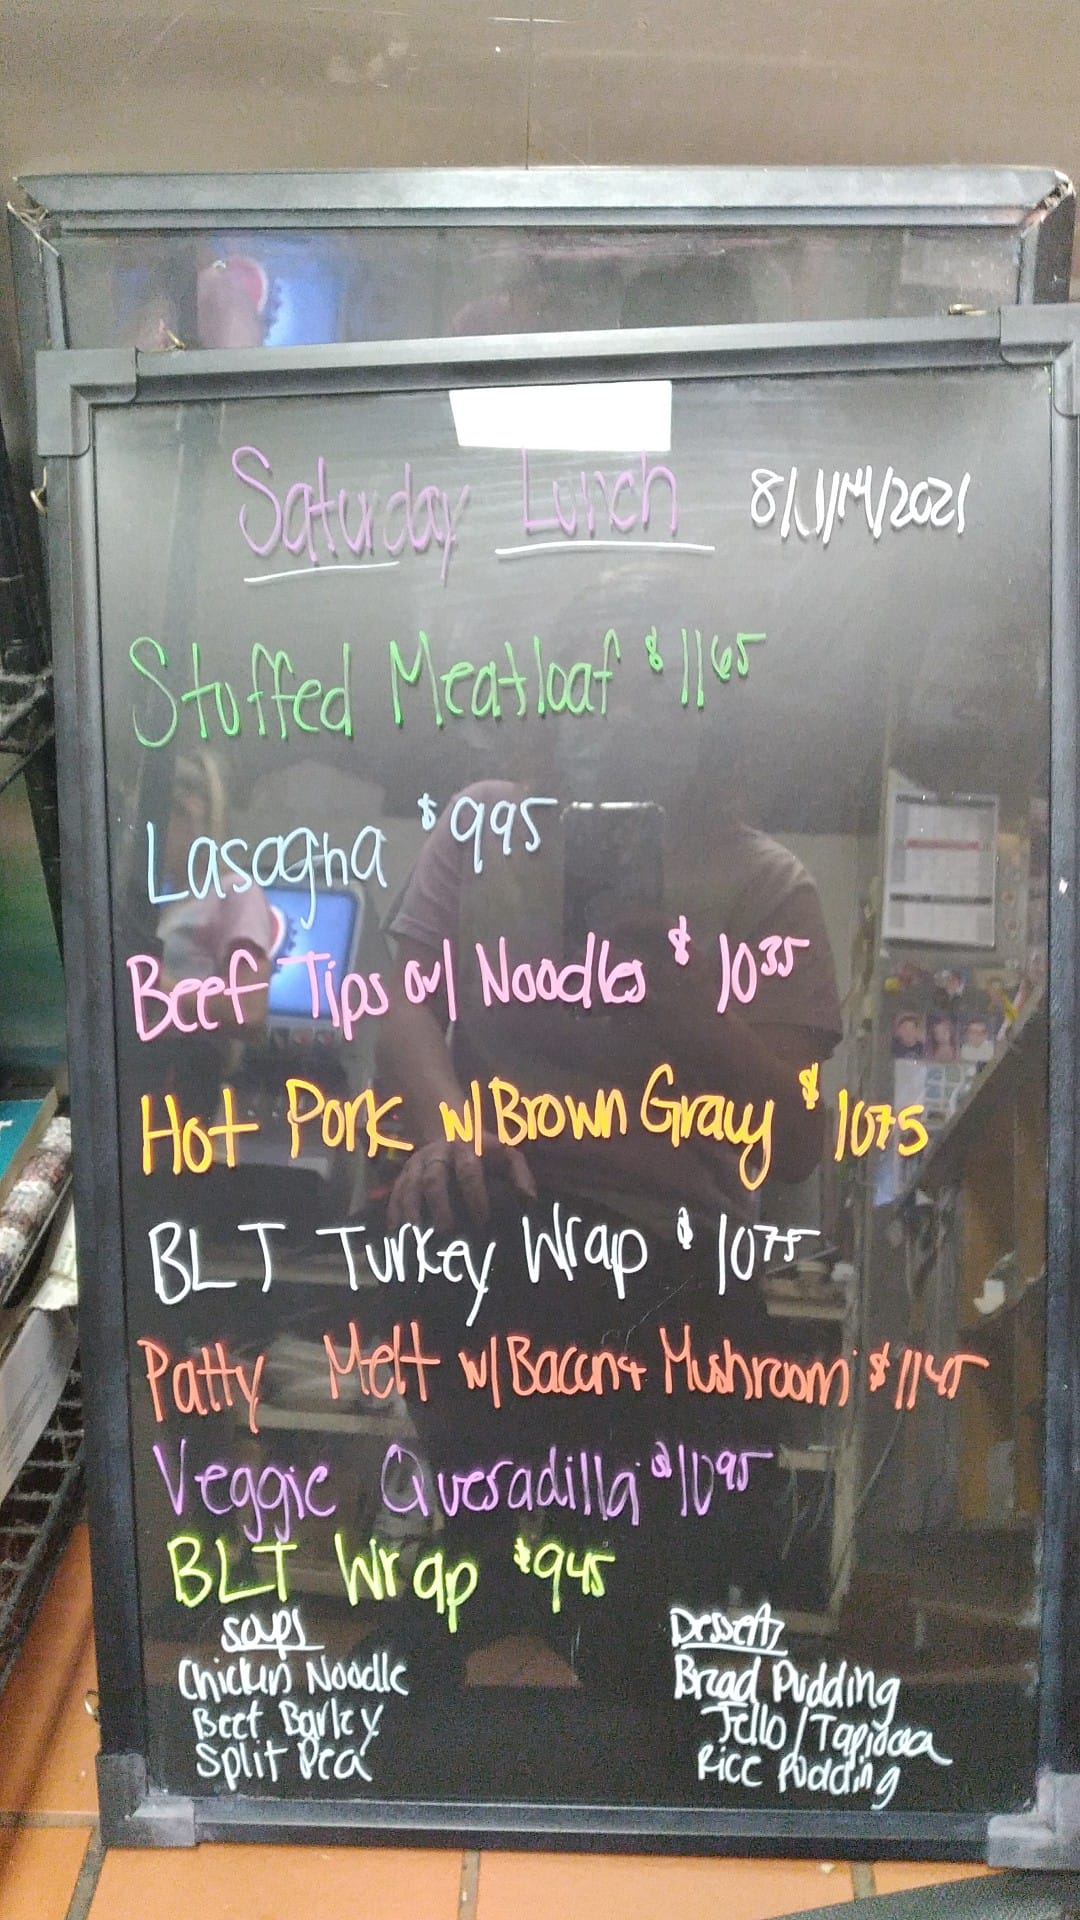 Saturday Lunch 8/14/2021
Stuffed Meatloaf $11 65
Lasagna $9 95
Beef Tips w/ Noodles $10 35
Hot Pork w/ Brown Gravy $10 75
BLT Turkey Wrap $10 75
Patty Melt w/ Bacon + Mushroom $11 45
Veggie Quesadilla $10 95
BLT Wrap $9 45
Soups
Chicken Noodle
Beef Barley
Split Pea
Desserts
Bread Pudding
Jello / Tapioca
Rice Pudding